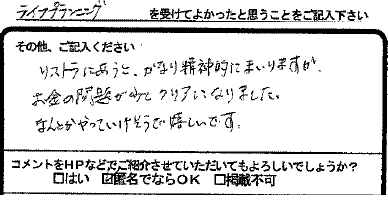 ライフプランニング を受けてよかったと思うことをご記入下さい
その他、ご記入ください
リストラにあうと、かなり精神的にまいりますが、
お金の問題がクリアになりました。
なんとかやっていけそうで嬉しいです。
コメントをHPなどでご紹介させていただいてもよろしいでしょうか？
□はい ☑匿名でならOK □掲載不可